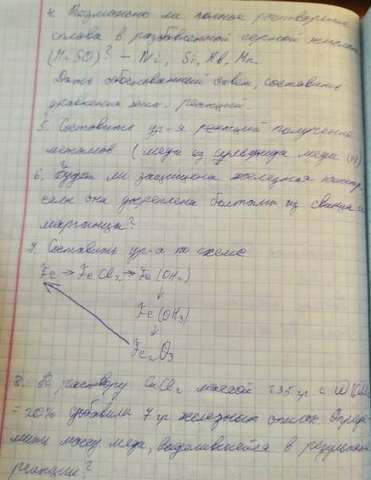 4. Возможно ли полное растворение
сплава в разбавленной серной кислоте
(H₂SO₄)? – Ni, Si, Mn.
Дать обоснованный ответ, составить
уравнения хим. реакций
5. Составить ур-я реакций получения
металлов (меди из сульфида меди (II)
6. Будет ли защищена железная констр.
если она укреплена болтами из свинца и
марганца?
7. Составить ур-я по схеме
Fe → FeCl₂ → Fe(OH₂)
↓
Fe(OH₃)
↓
Fe₂O₃
8. К раствору CuCl₂ массой 135 гр. с W
= 20% добавили 7 гр железных опилок. Опреде-
лить массу меди, выделившейся в результате
реакции?